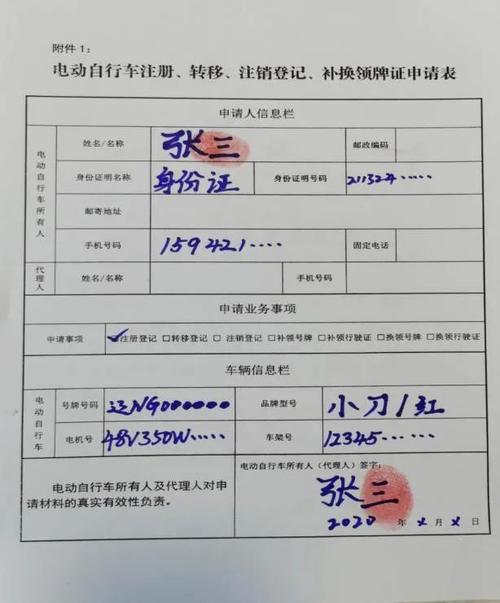 附件1:
电动自行车注册、转移、注销登记、补换领牌证申请表
申请人信息栏
电动自行车所有人
姓名/名称 张三 邮政编码
身份证明名称 身份证 身份证明号码 211324.....
邮寄地址
手机号码 159421.... 固定电话
代理人 姓名/名称 手机号码
申请业务事项
申请事项 ☑注册登记 □转移登记 □注销登记 □补领号牌 □补领行驶证 □换领号牌 □换领行驶证
车辆信息栏
电动自行车
号牌号码 辽NG000000 品牌型号 小刀/红
电机号 48V350W..... 车架号 12345.....
电动自行车所有人及代理人对申请材料的真实有效性负责。
电动自行车所有人(代理人)签字:
张三
2020 年 x 月 x 日